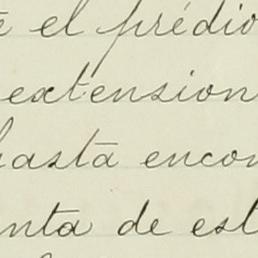 e el prédio
extension
hasta encon
nta de est